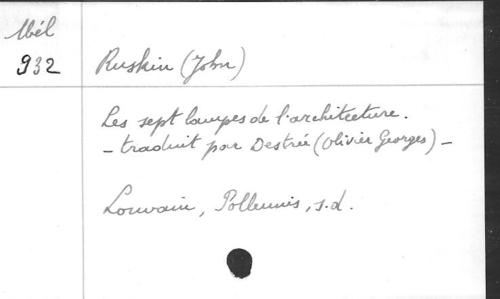 Mél
932
Ruskin (John)
Les sept lampes de l'architecture.
- traduit par Destrée (Olivier Georges) -
Louvain, Polleunis, s.d.